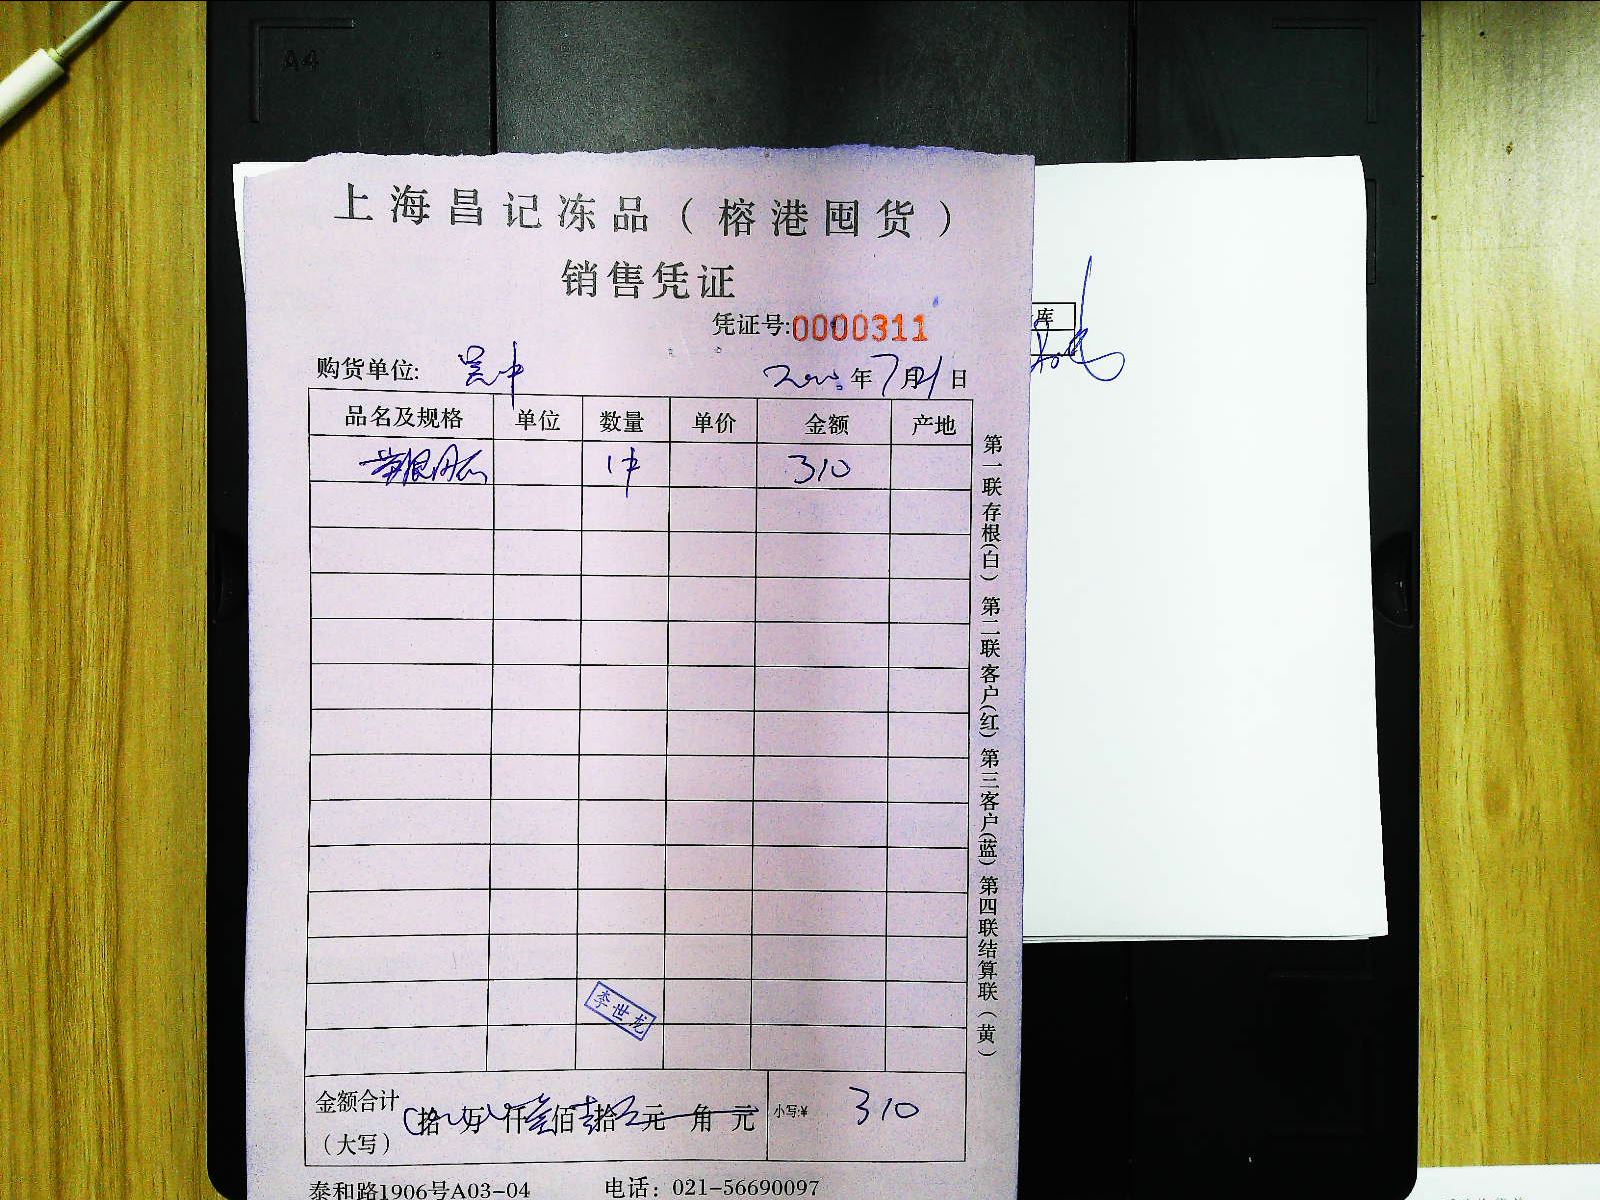 A4
上海昌记冻品（榕港囤货）
销售凭证
凭证号:0000311
购货单位: 吴中
年7月 日
品名及规格 单位 数量 单价 金额 产地
1件 310
李世龙
金额合计（大写） 拾 万 仟叁佰壹拾 元 角 元 小写:¥ 310
泰和路1906号A03-04 电话：021-56690097
第一联存根(白) 第二联客户(红) 第三客户(蓝) 第四联结算联（黄）
库